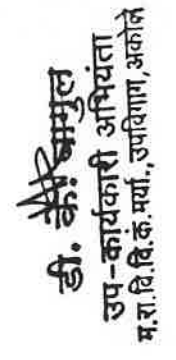 डी. के. बागुल
उप-कार्यकारी अभियंता
म.रा.वि.वि.क.मर्या., उपविभाग, अकोले